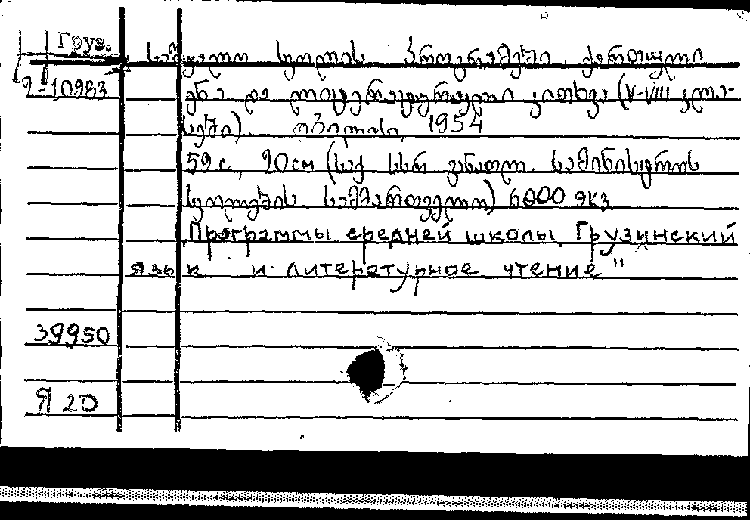 Груз.
საშუალო სკოლის პროგრამები. ქართული
2-10983
ენა და ლიტერატურული კითხვა (V-VIII კლა-
სები). თბილისი, 1954
59 с., 20 см (საქ. სსრ განათლ. სამინისტროს
სკოლების სამმართველო) 6000 экз
Программы средней школы. Грузинский
язык и литературное чтение"
39950
Я 20